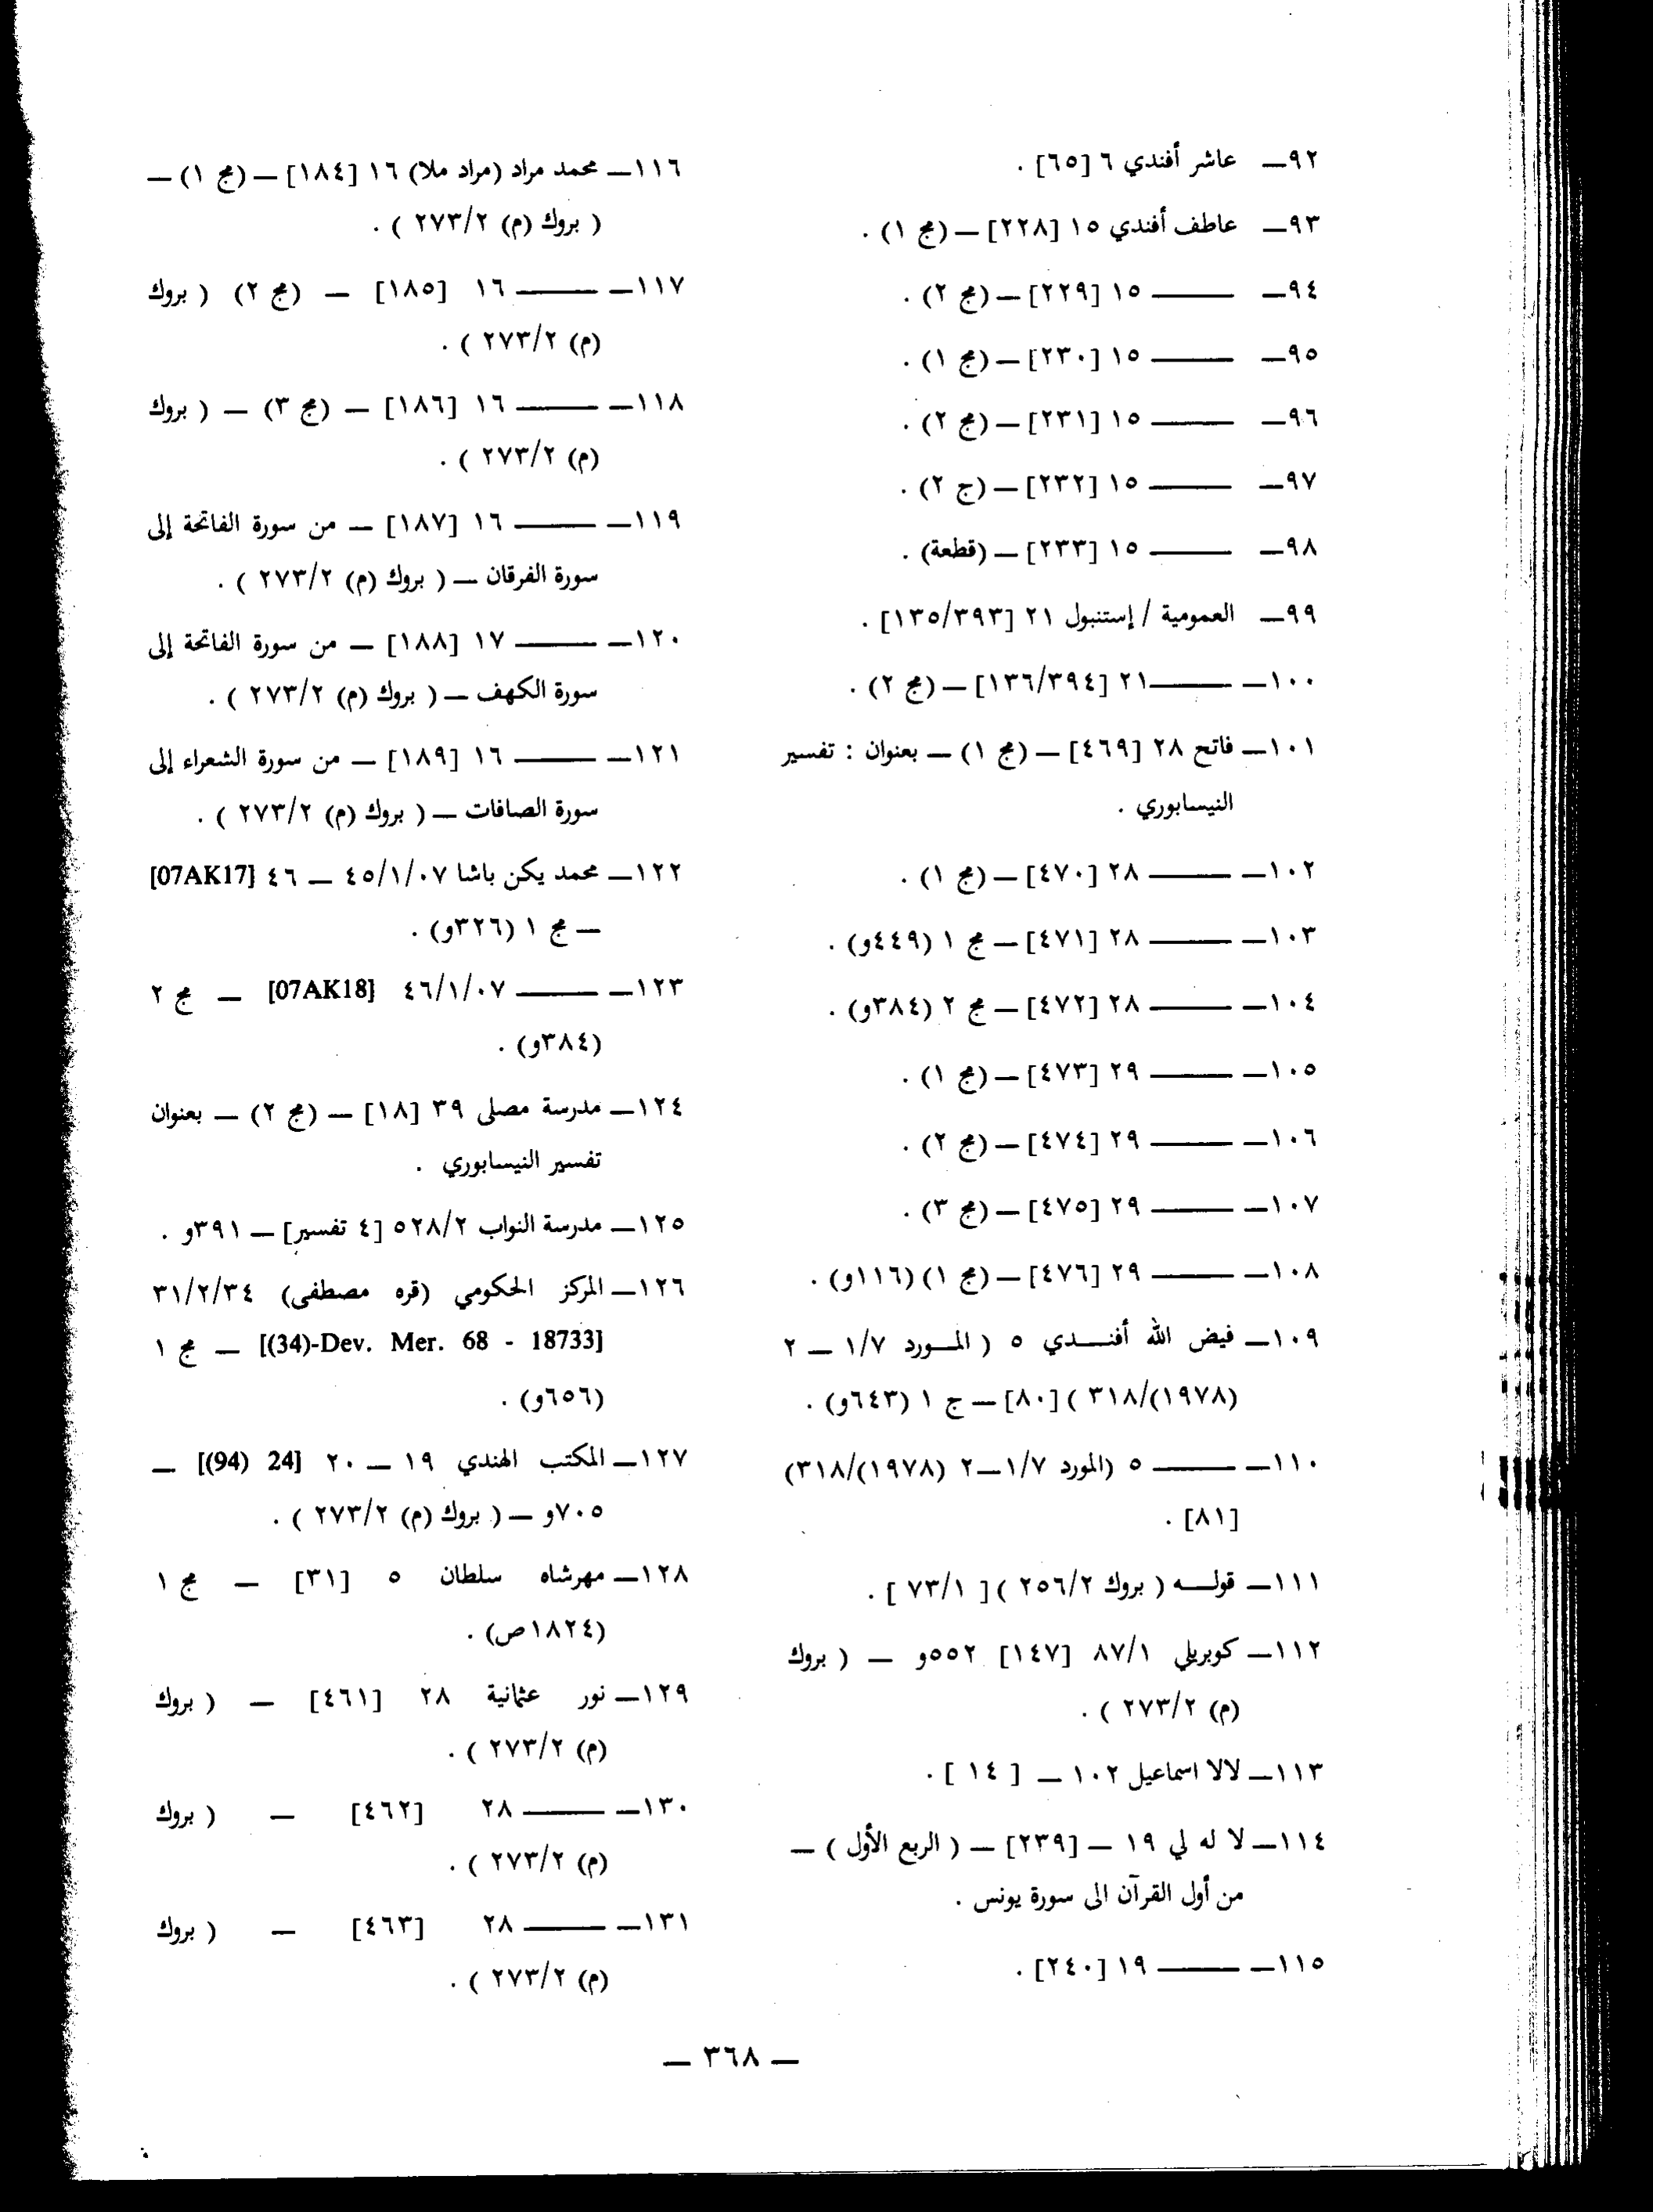 ٩٢ــ عاشر أفندي ٦ [٦٥] .
٩٣ــ عاطف أفندي ١٥ [٢٢٨] ــ (مج ١) .
٩٤ــ ــــــــ ١٥ [٢٢٩] ــ (مج ٢) .
٩٥ــ ــــــــ ١٥ [٢٣٠] ــ (مج ١) .
٩٦ــ ــــــــ ١٥ [٢٣١] ــ (مج ٢) .
٩٧ــ ــــــــ ١٥ [٢٣٢] ــ (ج ٢) .
٩٨ــ ــــــــ ١٥ [٢٣٣] ــ (قطعة) .
٩٩ــ العمومية / إستنبول ٢١ [١٣٥/٣٩٣] .
١٠٠ــ ــــــــ ٢١ [١٣٦/٣٩٤] ــ (مج ٢) .
١٠١ــ فاتح ٢٨ [٤٦٩] ــ (مج ١) ــ بعنوان : تفسير
النيسابوري .
١٠٢ــ ــــــــ ٢٨ [٤٧٠] ــ (مج ١) .
١٠٣ــ ــــــــ ٢٨ [٤٧١] ــ مج ١ (٤٤٩و) .
١٠٤ــ ــــــــ ٢٨ [٤٧٢] ــ مج ٢ (٣٨٤و) .
١٠٥ــ ــــــــ ٢٩ [٤٧٣] ــ (مج ١) .
١٠٦ــ ــــــــ ٢٩ [٤٧٤] ــ (مج ٢) .
١٠٧ــ ــــــــ ٢٩ [٤٧٥] ــ (مج ٣) .
١٠٨ــ ــــــــ ٢٩ [٤٧٦] ــ (مج ١) (١١٦و) .
١٠٩ــ فيض الله أفنــدي ٥ ( المــورد ١/٧ ــ ٢
(١٩٧٨)/٣١٨ ) [٨٠] ــ ج ١ (٦٤٣و) .
١١٠ــ ــــــــ ٥ (المورد ١/٧ــ٢ (١٩٧٨)/٣١٨)
[٨١] .
١١١ــ قولــه ( بروك ٢٥٦/٢ ) [ ٧٣/١ ] .
١١٢ــ كوبريلي ٨٧/١ [١٤٧] ٥٥٢و ــ ( بروك
(م) ٢٧٣/٢ ) .
١١٣ــ لالا اسماعيل ١٠٢ ــ [ ١٤ ] .
١١٤ــ لا له لي ١٩ ــ [٢٣٩] ــ ( الربع الأول ) ــ
من أول القرآن الى سورة يونس .
١١٥ــ ــــــــ ١٩ [٢٤٠] .
١١٦ــ محمد مراد (مراد ملا) ١٦ [١٨٤] ــ (مج ١) ــ
( بروك (م) ٢٧٣/٢ ) .
١١٧ــ ــــــــ ١٦ [١٨٥] ــ (مج ٢) ( بروك
(م) ٢٧٣/٢ ) .
١١٨ــ ــــــــ ١٦ [١٨٦] ــ (مج ٣) ــ ( بروك
(م) ٢٧٣/٢ ) .
١١٩ــ ــــــــ ١٦ [١٨٧] ــ من سورة الفاتحة إلى
سورة الفرقان ــ ( بروك (م) ٢٧٣/٢ ) .
١٢٠ــ ــــــــ ١٧ [١٨٨] ــ من سورة الفاتحة إلى
سورة الكهف ــ ( بروك (م) ٢٧٣/٢ ) .
١٢١ــ ــــــــ ١٦ [١٨٩] ــ من سورة الشعراء إلى
سورة الصافات ــ ( بروك (م) ٢٧٣/٢ ) .
١٢٢ــ محمد يكن باشا ٤٥/١/٠٧ ــ ٤٦ [07AK17]
ــ مج ١ (٣٢٦و) .
١٢٣ــ ــــــــ ٤٦/١/٠٧ [07AK18] ــ مج ٢
(٣٨٤و) .
١٢٤ــ مدرسة مصلى ٣٩ [١٨] ــ (مج ٢) ــ بعنوان
تفسير النيسابوري .
١٢٥ــ مدرسة النواب ٥٢٨/٢ [٤ تفسير] ــ ٣٩١و .
١٢٦ــ المركز الحكومي (قره مصطفى) ٣١/٢/٣٤
[(34)-Dev. Mer. 68 - 18733] ــ مج ١
(٦٥٦و) .
١٢٧ــ المكتب الهندي ١٩ ــ ٢٠ [24 (94)] ــ
٧٠٥و ــ ( بروك (م) ٢٧٣/٢ ) .
١٢٨ــ مهرشاه سلطان ٥ [٣١] ــ مج ١
(١٨٢٤ص) .
١٢٩ــ نور عثمانية ٢٨ [٤٦١] ــ ( بروك
(م) ٢٧٣/٢ ) .
١٣٠ــ ــــــــ ٢٨ [٤٦٢] ــ ( بروك
(م) ٢٧٣/٢ ) .
١٣١ــ ــــــــ ٢٨ [٤٦٣] ــ ( بروك
(م) ٢٧٣/٢ ) .
ــ ٣٦٨ ــ